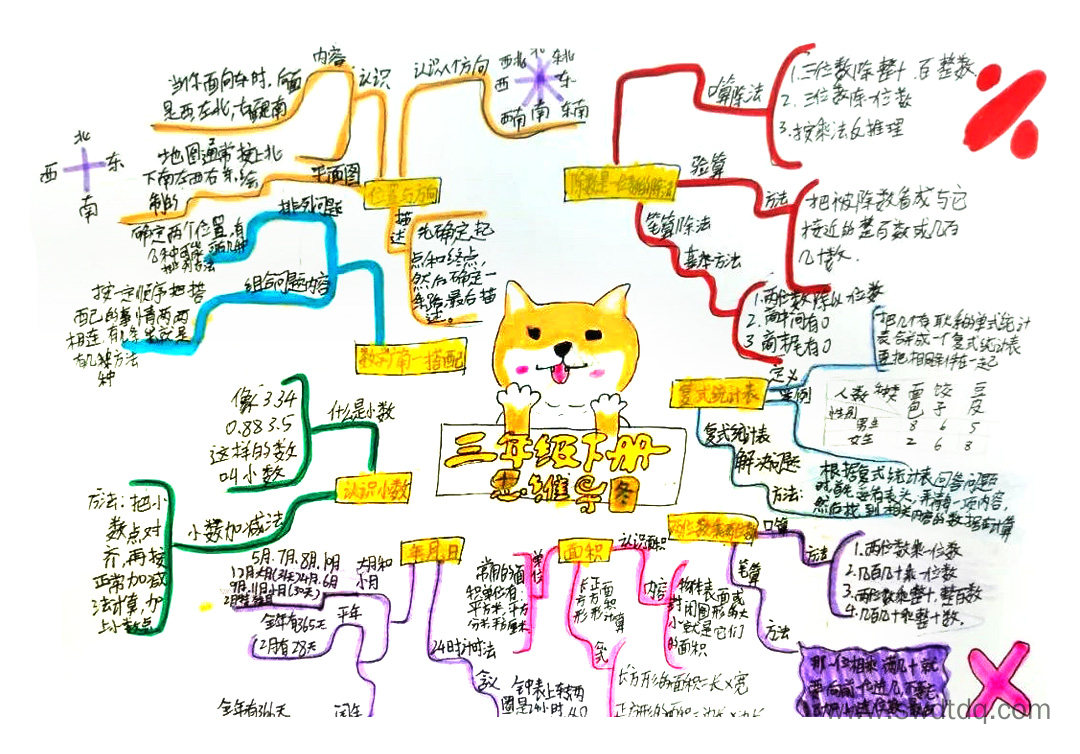 三年级下册
思维导图
位置与方向
认识
内容
当你面向东时,后面
是西,左北,右面是南
平面图
地图通常按上北
下南左西右东绘
制的
北
西
东
南
认识八个方向
西北
北
东北
西
东
西南
南
东南
描述
先确定起
点和终点,
然后确定一
最后描
述。
数学广角一搭配
排列问题
确定两个位置,有
组合问题内容
按一定顺序把搭
配己的事情两两
相连
认识小数
什么是小数
像3.34
0.88 3.5
这样的数
叫小数
小数加减法
方法:把小
数点对
齐,再按
正常加减
法计算,加
上小数点
除数是一位数的除法
口算除法
1.三位数除整十.百整数.
2.三位数除一位数
3.按乘法反推理
验算
方法
把被除数看成与它
接近的整百数或几百
几十数.
笔算除法
基本方法
1.两位数除以一位数
2.商中间有0
3.商末尾有0
复式统计表
定义
把几个有联系的单式统计
表合成一个复式统计表
更把相同条件在一起
举例
人数 种类 面包 饺子 豆皮
性别
男生 8 6 5
女生 2 6 8
复式统计表
解决问题
方法:
根据复式统计表回答问题
两位数乘两位数
口算
方法
1.两位数乘一位数
2.几百几十乘一位数
3.两位数乘整十.整百数
4.几百几十乘整十数.
笔算
方法
年、月、日
大月和
小月
平年
全年有365天
2月有28天
闰年
全年有366天
24时计时法
含义
面积
单位
常用的面
积单位有:
平方米,平方
分米,平方厘米
认识面积
内容
物体表面或
封闭图形的大
小就是它们
的面积
长方形
正方形
面积计算
公式
长方形的面积=长×宽
正方形的面积=边长×边长